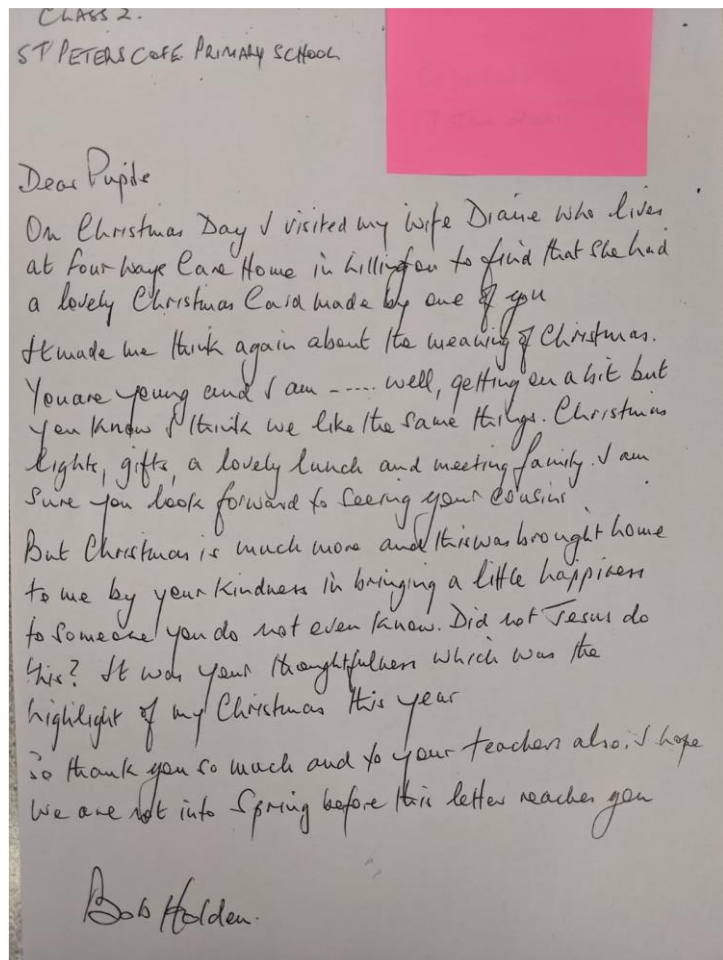 CLASS 2.
ST PETERS COFE PRIMARY SCHOOL
Dear Pupils
On Christmas Day I visited my wife Diane who lives
at Four Ways Care Home in Hillington to find that she had
a lovely Christmas Card made by one of you
It made me think again about the meaning of Christmas.
You are young and I am ----- well, getting on a bit but
you know I think we like the same things. Christmas
lights, gifts, a lovely lunch and meeting family. I am
sure you look forward to seeing your cousins
But Christmas is much more and this was brought home
to me by your kindness in bringing a little happiness
to someone you do not even know. Did not Jesus do
this? It was your thoughtfulness which was the
highlight of my Christmas this year
So thank you so much and to your teachers also. I hope
we are not into Spring before this letter reaches you
Bob Holden.